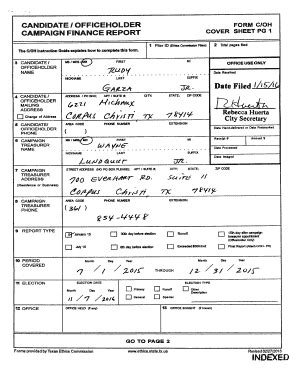 CANDIDATE / OFFICEHOLDER
CAMPAIGN FINANCE REPORT
FORM C/OH
COVER SHEET PG 1
The C/OH Instruction Guide explains how to complete this form.
1 Filer ID (Ethics Commission Filers)
2 Total pages filed:
3 CANDIDATE / OFFICEHOLDER NAME
MS / MRS / MR FIRST MI
RUDY
NICKNAME LAST SUFFIX
GARZA JR.
OFFICE USE ONLY
Date Received
Date Filed 1/15/16
Rebecca Huerta
City Secretary
4 CANDIDATE / OFFICEHOLDER MAILING ADDRESS
Change of Address
ADDRESS / PO BOX; APT / SUITE #; CITY; STATE; ZIP CODE
CORPUS CHRISTI TX 78414
5 CANDIDATE / OFFICEHOLDER PHONE
AREA CODE PHONE NUMBER EXTENSION
Date Hand-delivered or Date Postmarked
6 CAMPAIGN TREASURER NAME
MS / MRS / MR FIRST MI
WAYNE
NICKNAME LAST SUFFIX
LUNDQUIST JR.
Receipt # Amount $
Date Processed
Date Imaged
7 CAMPAIGN TREASURER ADDRESS
(Residence or Business)
STREET ADDRESS (NO PO BOX PLEASE); APT / SUITE #; CITY; STATE; ZIP CODE
700 EVERHART RD. SUITE 11
CORPUS CHRISTI TX 78414
8 CAMPAIGN TREASURER PHONE
AREA CODE PHONE NUMBER EXTENSION
(361)
854-4448
9 REPORT TYPE
January 15
30th day before election
Runoff
15th day after campaign treasurer appointment (Officeholder Only)
July 15
8th day before election
Exceeded $500 limit
Final Report (Attach C/OH - FR)
10 PERIOD COVERED
Month Day Year
7 / 1 / 2015 THROUGH 12 / 31 / 2015
11 ELECTION
ELECTION DATE
Month Day Year
11 / 7 / 2016
ELECTION TYPE
Primary
Runoff
Other Description
General
Special
12 OFFICE
OFFICE HELD (if any)
13 OFFICE SOUGHT (if known)
GO TO PAGE 2
Forms provided by Texas Ethics Commission
www.ethics.state.tx.us
INDEXED